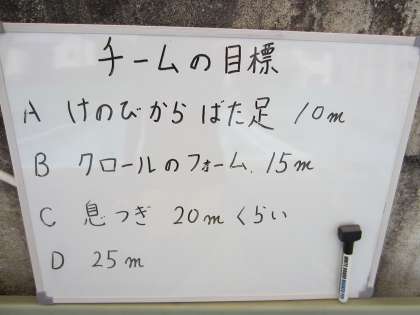 チームの目標
A けのびから ばた足 10m
B クロールのフォーム、15m
C 息つぎ 20mくらい
D 25m